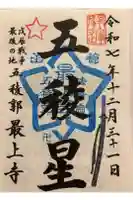 令和七年十二月三十一日
五稜星
戊辰戦争
最後の地
五稜郭 最上寺